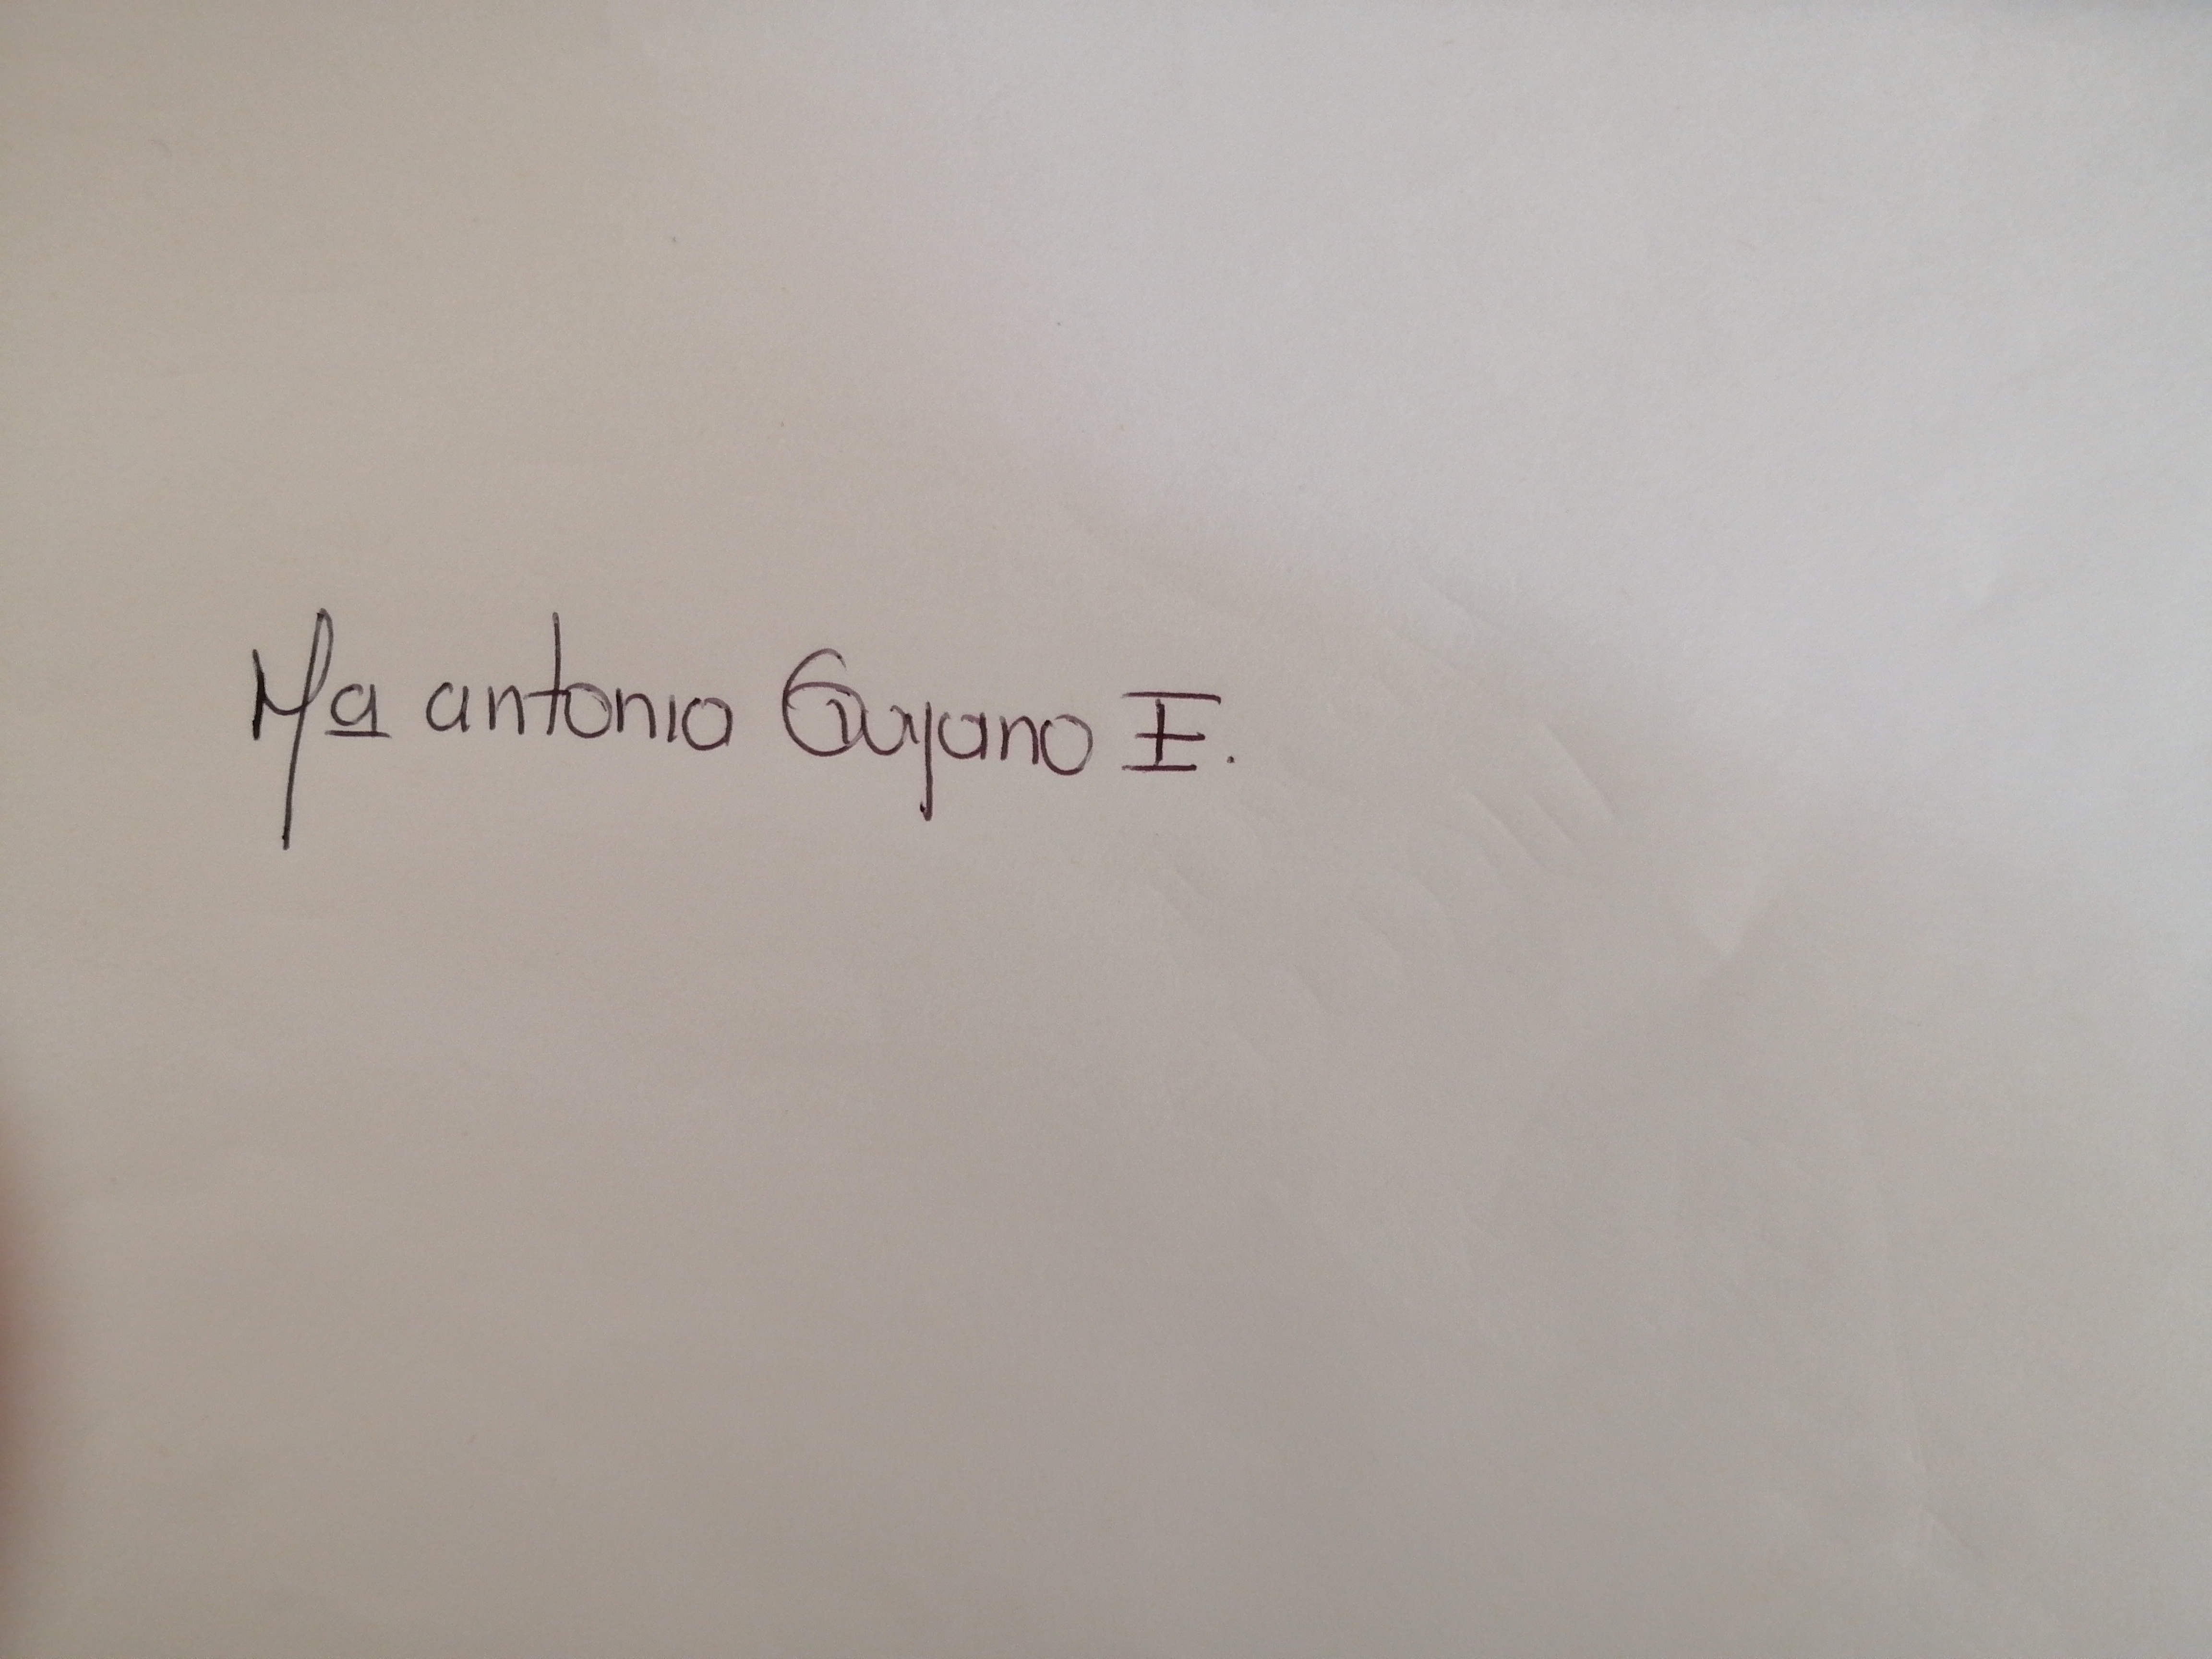 Ma antonia Guyano E.